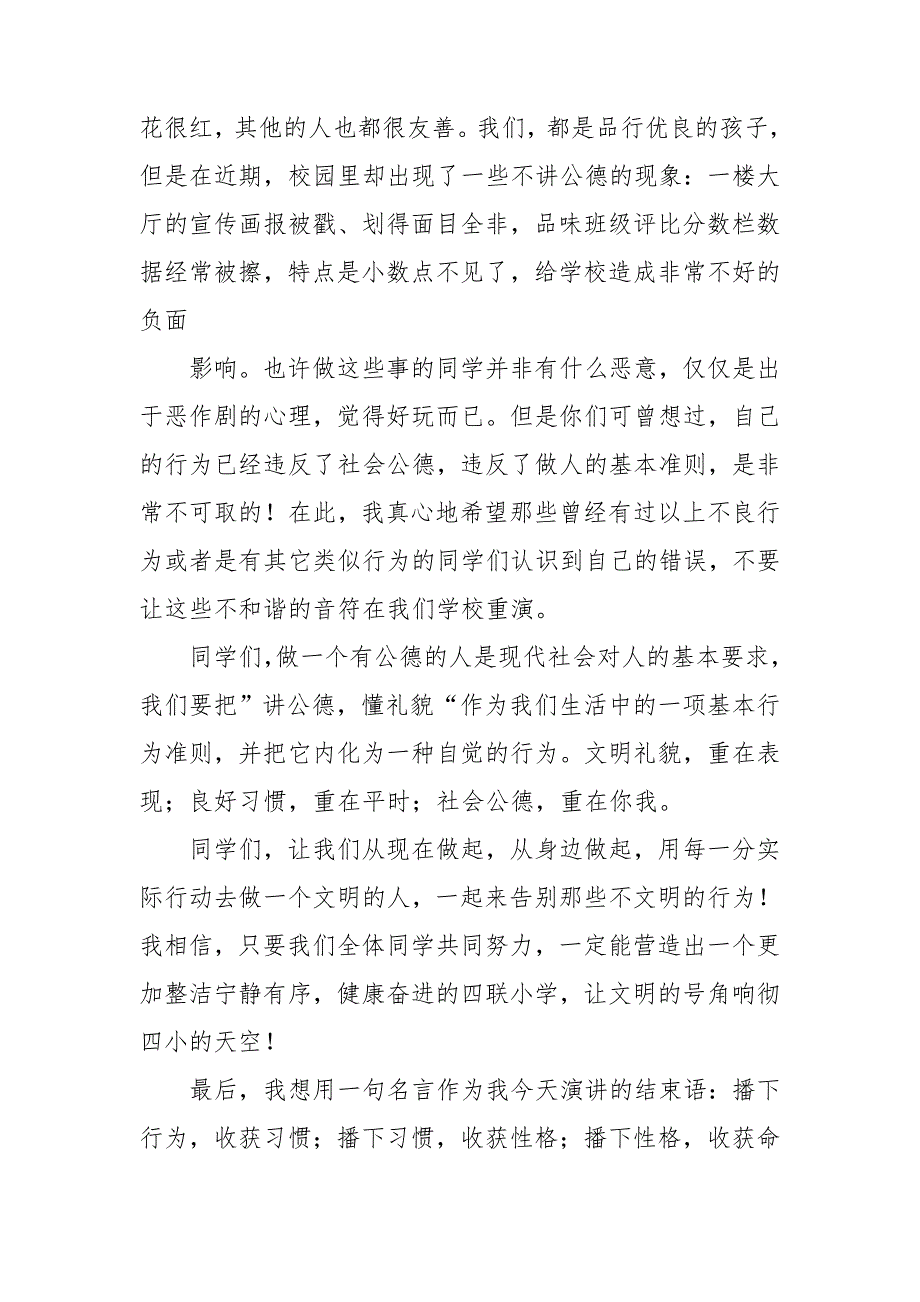 花很红，其他的人也都很友善。我们，都是品行优良的孩子，
但是在近期，校园里却出现了一些不讲公德的现象：一楼大
厅的宣传画报被戳、划得面目全非，品味班级评比分数栏数
据经常被擦，特点是小数点不见了，给学校造成非常不好的
负面
影响。也许做这些事的同学并非有什么恶意，仅仅是出
于恶作剧的心理，觉得好玩而已。但是你们可曾想过，自己
的行为已经违反了社会公德，违反了做人的基本准则，是非
常不可取的！在此，我真心地希望那些曾经有过以上不良行
为或者是有其它类似行为的同学们认识到自己的错误，不要
让这些不和谐的音符在我们学校重演。
同学们，做一个有公德的人是现代社会对人的基本要求，
我们要把”讲公德，懂礼貌“作为我们生活中的一项基本行
为准则，并把它内化为一种自觉的行为。文明礼貌，重在表
现；良好习惯，重在平时；社会公德，重在你我。
同学们，让我们从现在做起，从身边做起，用每一分实
际行动去做一个文明的人，一起来告别那些不文明的行为！
我相信，只要我们全体同学共同努力，一定能营造出一个更
加整洁宁静有序，健康奋进的四联小学，让文明的号角响彻
四小的天空！
最后，我想用一句名言作为我今天演讲的结束语：播下
行为，收获习惯；播下习惯，收获性格；播下性格，收获命